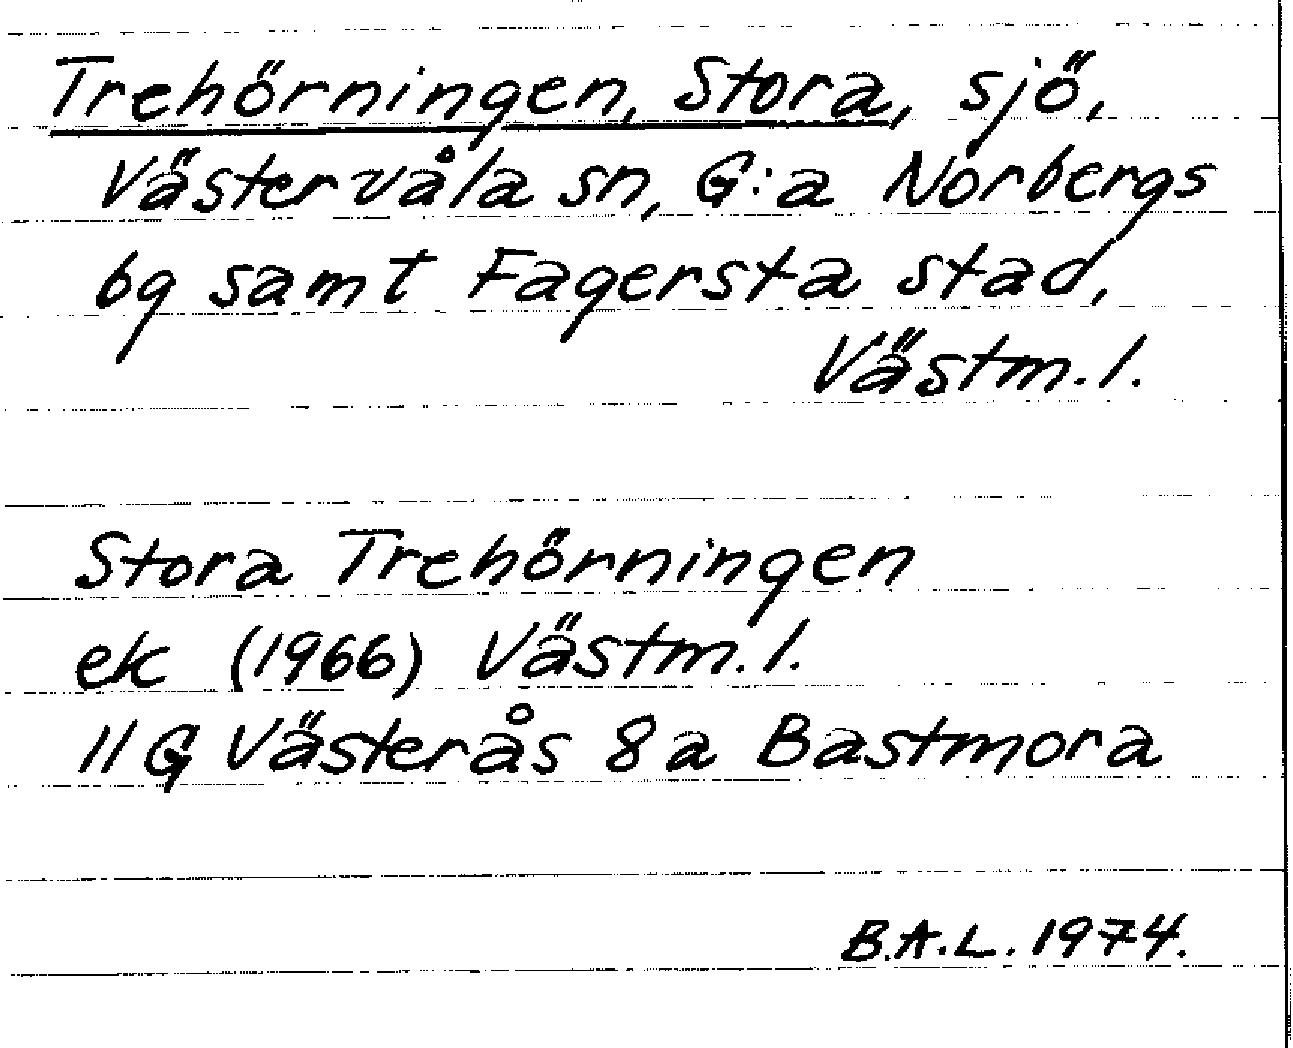 Trehörningen, Stora, sjö,
Västervåla sn, G:a Norbergs
bg samt Fagersta stad,
Västm. l.
Stora Trehörningen
ek (1966) Västm. l.
11G Västerås 8a Bastmora
B.A.L. 1974.